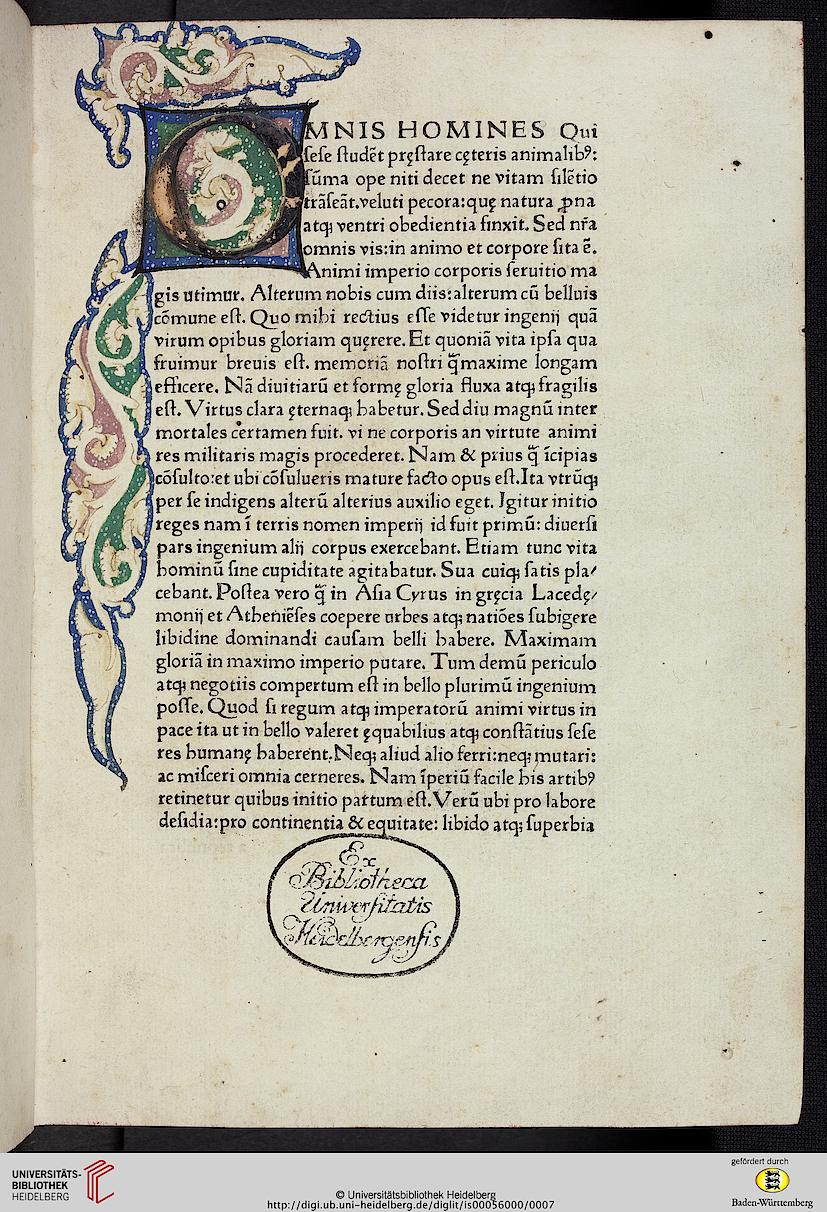 OMNIS HOMINES Qui
ſeſe ſtudẽt pręſtare cęteris animalibꝰ:
ſũma ope niti decet ne vitam ſilẽtio
trãſeãt.veluti pecora:quę natura ꝓna
atqꝫ ventri obedientia finxit. Sed nr̃a
omnis vis:in animo et corpore ſita ẽ.
Animi imperio corporis ſeruitio ma
gis utimur. Alterum nobis cum diis:alterum cũ belluis
cõmune eſt. Quo mihi rectius eſſe videtur ingenij quã
virum opibus gloriam quęrere. Et quoniã vita ipſa qua
fruimur breuis eſt. memoriã noſtri q̃maxime longam
efficere. Nã diuitiarũ et formę gloria fluxa atqꝫ fragilis
eſt. Virtus clara ęternaqꝫ habetur. Sed diu magnũ inter
mortales certamen fuit. vi ne corporis an virtute animi
res militaris magis procederet. Nam & prius q̃ ĩcipias
cõſulto:et ubi cõſulueris mature facto opus eſt.Ita vtrũqꝫ
per ſe indigens alterũ alterius auxilio eget. Igitur initio
reges nam ĩ terris nomen imperij id fuit primũ: diuerſi
pars ingenium alij corpus exercebant. Etiam tunc vita
hominũ ſine cupiditate agitabatur. Sua cuiqꝫ ſatis pla⸗
cebant. Poſtea vero q̃ in Aſia Cyrus in gręcia Lacedę⸗
monij et Atheniẽſes coepere urbes atqꝫ natiões ſubigere
libidine dominandi cauſam belli habere. Maximam
gloriã in maximo imperio putare. Tum demũ periculo
atqꝫ negotiis compertum eſt in bello plurimũ ingenium
poſſe. Quod ſi regum atqꝫ imperatorũ animi virtus in
pace ita ut in bello valeret ęquabilius atqꝫ conſtãtius ſeſe
res humanę haberent. Neqꝫ aliud alio ferri:neqꝫ mutari:
ac miſceri omnia cerneres. Nam ĩperiũ facile his artibꝰ
retinetur quibus initio partum eſt. Verũ ubi pro labore
deſidia:pro continentia & equitate: libido atqꝫ ſuperbia
Ex
Bibliotheca
Univerſitatis
Heidelbergenſis
UNIVERSITÄTS-
BIBLIOTHEK
HEIDELBERG
© Universitätsbibliothek Heidelberg
http://digi.ub.uni-heidelberg.de/diglit/is00056000/0007
gefördert durch
Baden-Württemberg